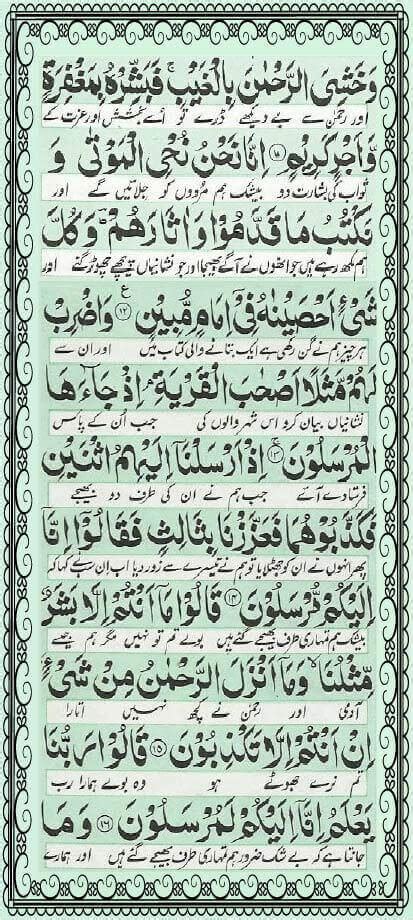 وَخَشِيَ الرَّحْمٰنَ بِالْغَيْبِ ۚ فَبَشِّرْهُ بِمَغْفِرَةٍ
اور رحمٰن سے بے دیکھے ڈرے تو اُسے بخشش اور عزت کے
وَّاَجْرٍ كَرِيْمٍ ۝۱۱ اِنَّا نَحْنُ نُحْيِ الْمَوْتٰى وَ
ثواب کی بشارت دو بیشک ہم مُردوں کو جلائیں گے اور
نَكْتُبُ مَا قَدَّمُوْا وَاٰثَارَهُمْ ؕ وَكُلَّ
ہم لکھ رہے ہیں جو انھوں نے آگے بھیجا اور جو نشانیاں پیچھے چھوڑ گئے اور
شَيْءٍ اَحْصَيْنٰهُ فِيْٓ اِمَامٍ مُّبِيْنٍ ۝۱۲ ع وَاضْرِبْ
ہر چیز ہم نے گن رکھی ہے ایک بتانے والی کتاب میں اور ان سے
لَهُمْ مَّثَلًا اَصْحٰبَ الْقَرْيَةِ ۘ اِذْ جَآءَهَا
نشانیاں بیان کرو اس شہر والوں کی جب اُن کے پاس
الْمُرْسَلُوْنَ ۝۱۳ اِذْ اَرْسَلْنَآ اِلَيْهِمُ اثْنَيْنِ
فرستادے آئے جب ہم نے ان کی طرف دو بھیجے
فَكَذَّبُوْهُمَا فَعَزَّزْنَا بِثَالِثٍ فَقَالُوْٓا اِنَّآ
پھر انہوں نے ان کو جھٹلایا تو ہم نے تیسرے سے زور دیا اب ان سب نے کہا کہ
اِلَيْكُمْ مُّرْسَلُوْنَ ۝۱۴ قَالُوْا مَآ اَنْتُمْ اِلَّا بَشَرٌ
بیشک ہم تمہاری طرف بھیجے گئے ہیں بولے تم تو نہیں مگر ہم جیسے
مِّثْلُنَا ۙ وَمَآ اَنْزَلَ الرَّحْمٰنُ مِنْ شَيْءٍ ۙ
آدمی اور رحمٰن نے کچھ نہیں اتارا
اِنْ اَنْتُمْ اِلَّا تَكْذِبُوْنَ ۝۱۵ قَالُوْا رَبُّنَا
تم نرے جھوٹے ہو وہ بولے ہمارا رب
يَعْلَمُ اِنَّآ اِلَيْكُمْ لَمُرْسَلُوْنَ ۝۱۶ وَمَا
جانتا ہے کہ بے شک ضرور ہم تمہاری طرف بھیجے گئے ہیں اور ہمارے